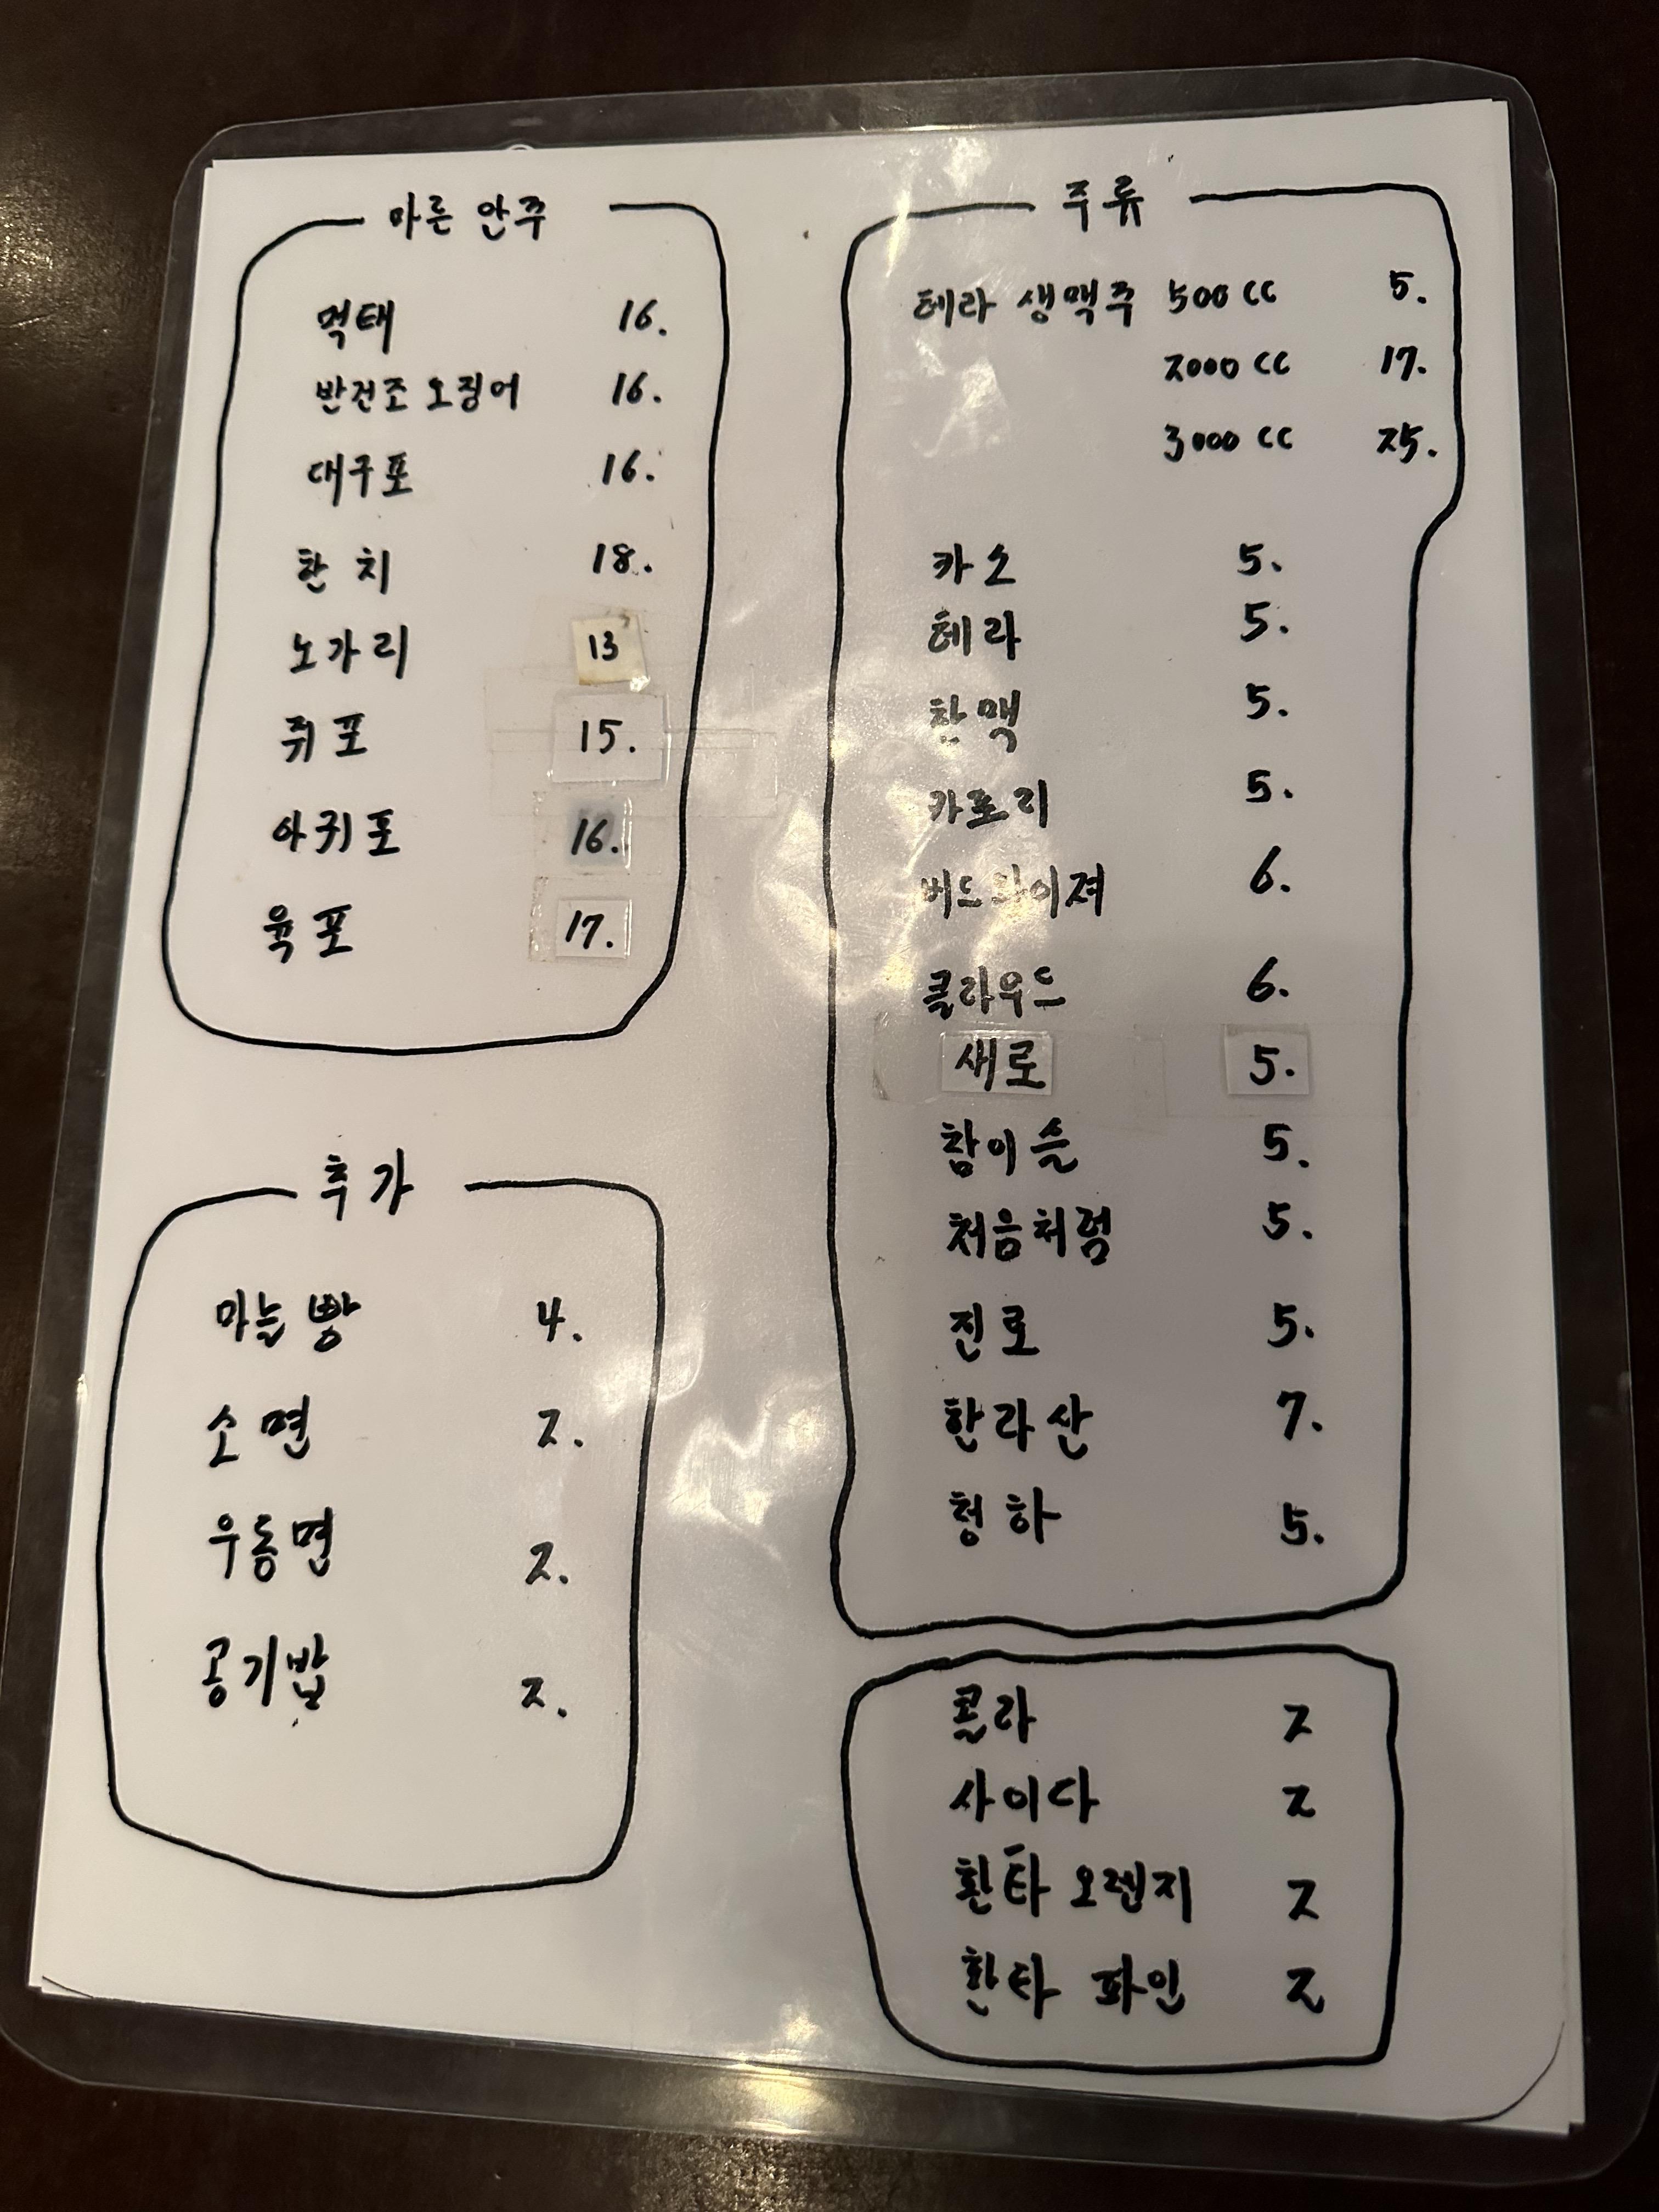 마른 안주
먹태 16.
반건조 오징어 16.
대구포 16.
한치 18.
노가리 13
쥐포 15.
아귀포 16.
육포 17.
추가
마늘빵 4.
소면 2.
우동면 2.
공기밥 2.
주류
테라 생맥주 500 cc 5.
2000 cc 17.
3000 cc 25.
카스 5.
테라 5.
찬맥 5.
카프리 5.
버드와이져 6.
클라우드 6.
새로 5.
참이슬 5.
처음처럼 5.
진로 5.
한라산 7.
청하 5.
콜라 2
사이다 2
환타 오렌지 2
환타 파인 2